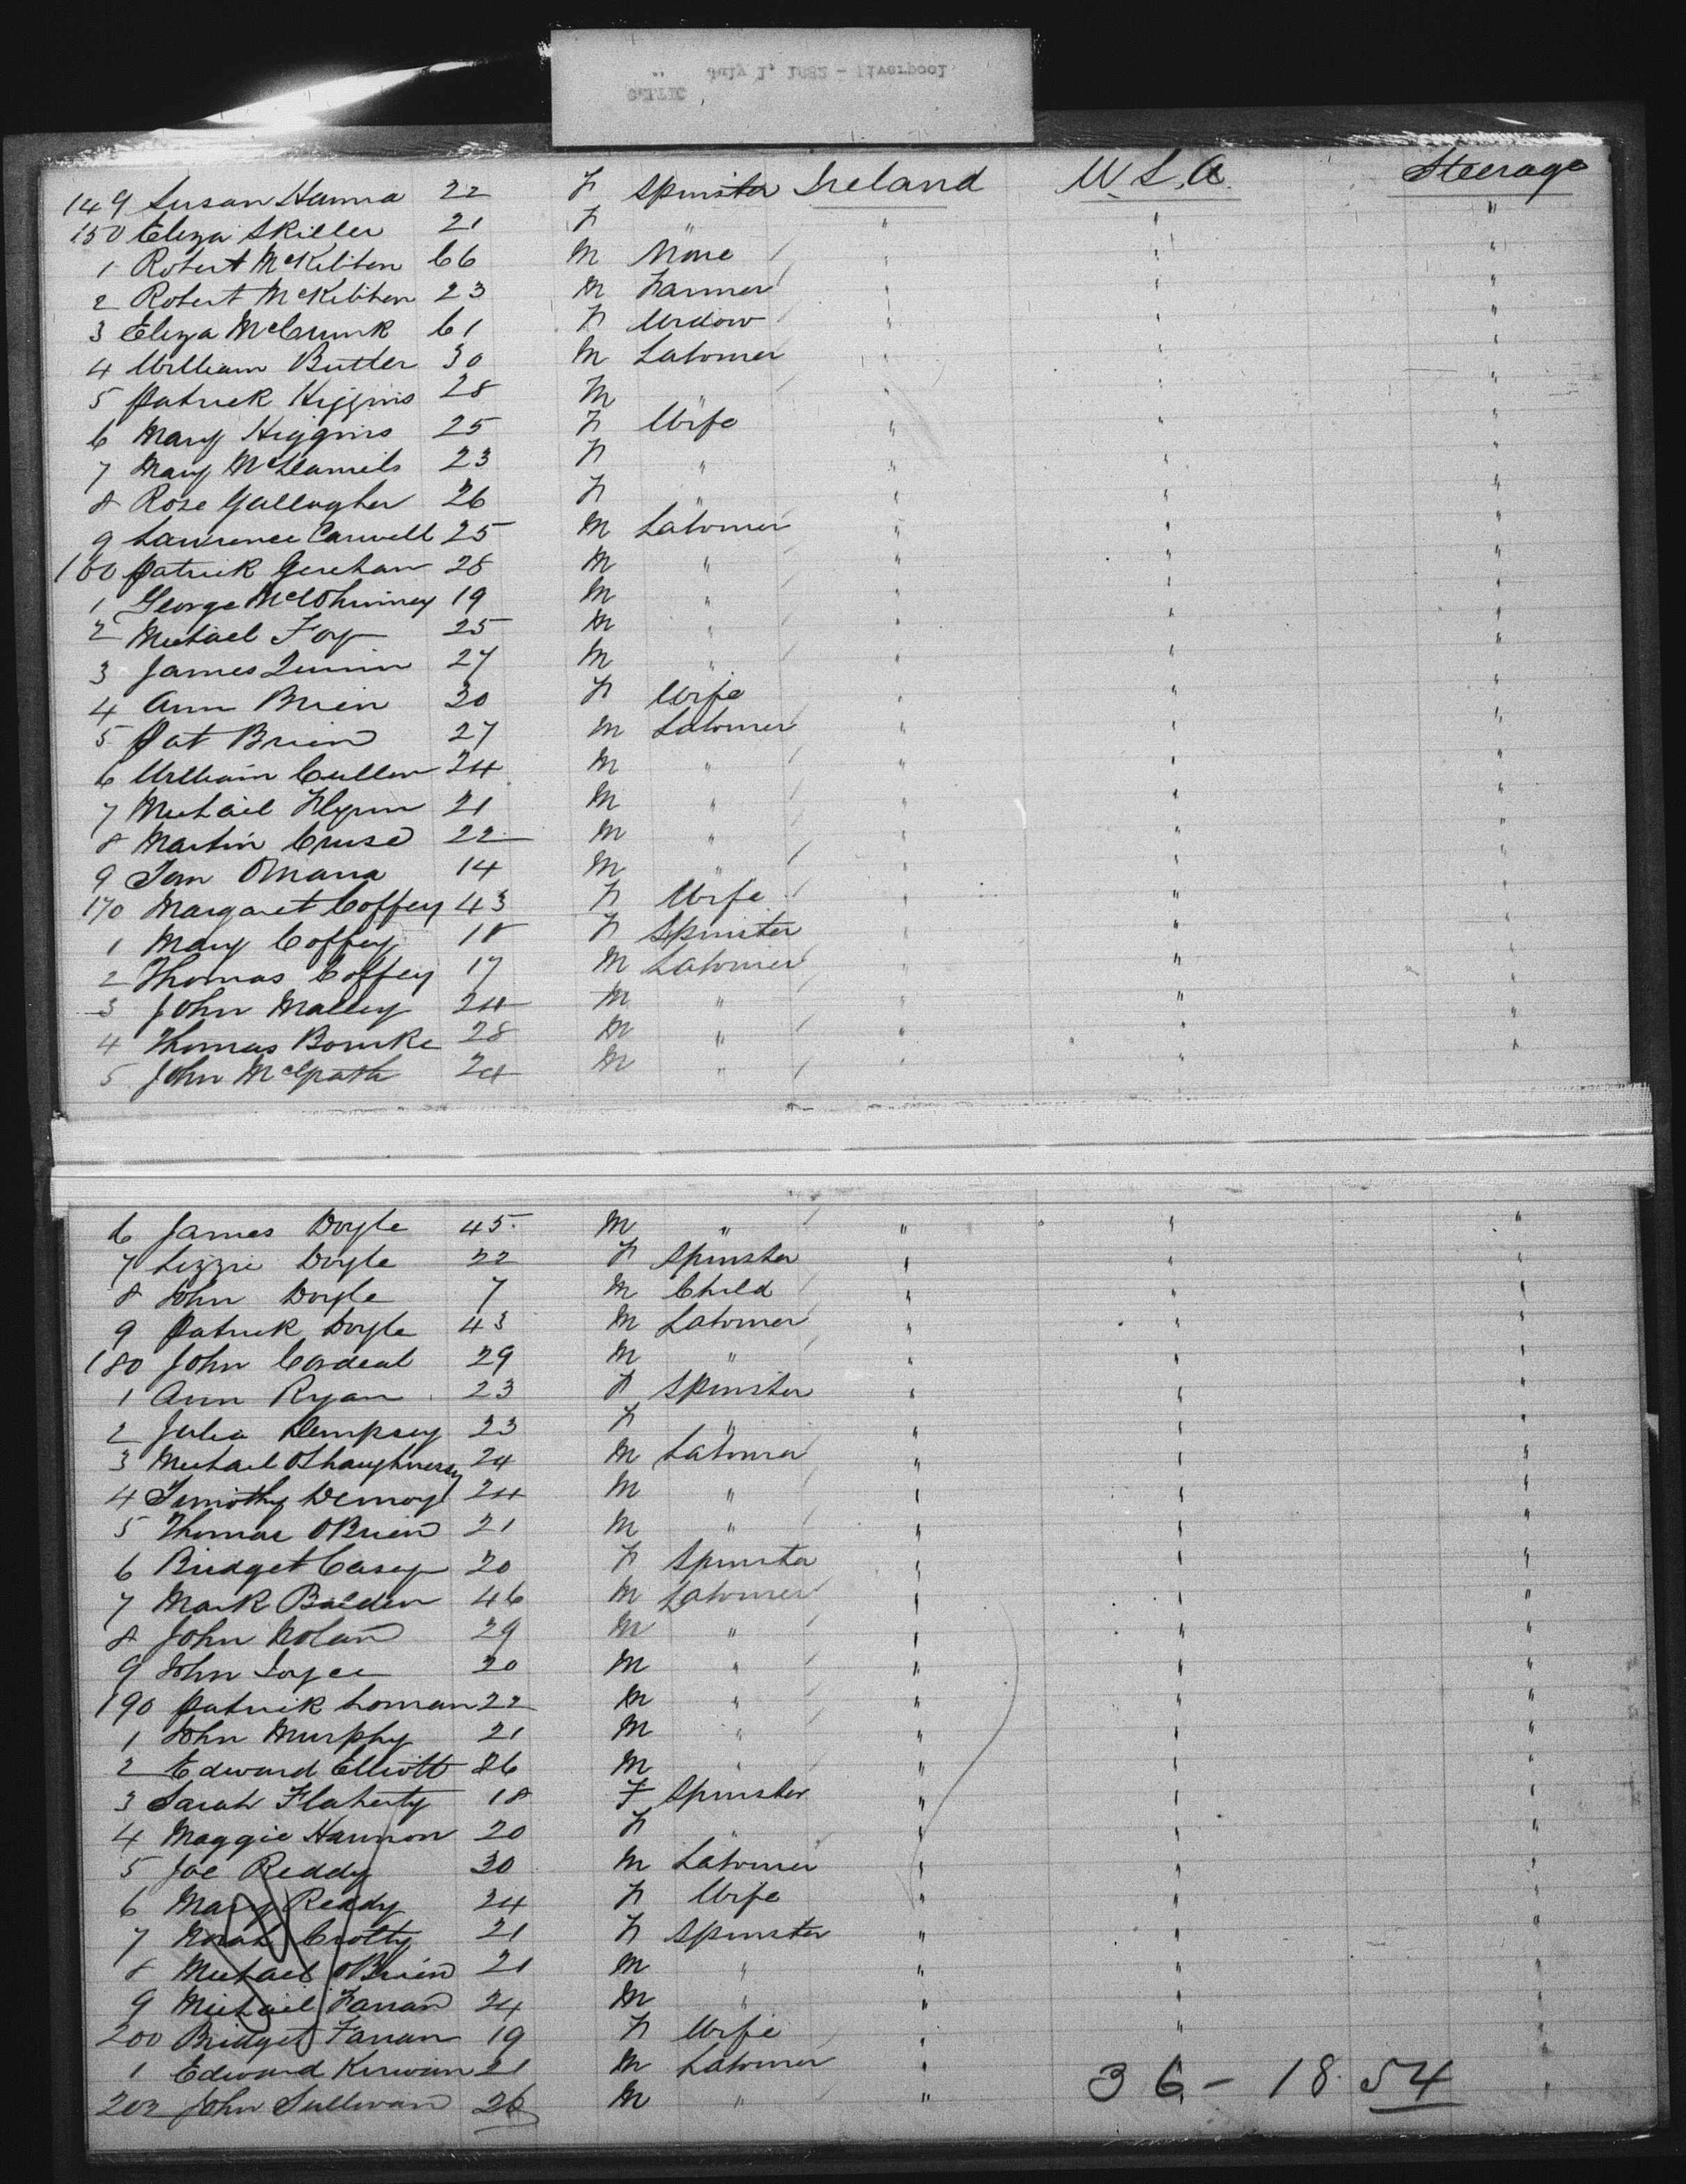 CELTIC
" July 1, 1882 - Liverpool
149 Susan Hanna 22 F Spinster Ireland U.S.A. Steerage
150 Eliza Skiller 21 F " " " "
1 Robert McKibben 66 M None " " "
2 Robert McKibben 23 M Farmer " " "
3 Eliza 61 F Widow " " "
4 William Butler 30 M Labourer " " "
5 Patrick Higgins 28 M " " " "
6 Mary Higgins 25 F Wife " " "
7 Mary 23 F " " " "
8 Rose Gallagher 26 F " " " "
9 Lawrence Carwell 25 M Labourer " " "
160 Patrick 28 M " " " "
1 George 19 M " " " "
2 Michael Foy 25 M " " " "
3 James Quinn 27 M " " " "
4 Ann Brien 30 F Wife " " "
5 Pat Brien 27 M Labourer " " "
6 William Cullen 24 M " " " "
7 Michael Flynn 21 M " " " "
8 Martin Cruse 22 M " " " "
9 Tom OMara 14 M " " " "
170 Margaret Coffey 43 F Wife " " "
1 Mary Coffey 18 F Spinster " " "
2 Thomas Coffey 17 M Labourer " " "
3 John Malley 24 M " " " "
4 Thomas Bourke 28 M " " " "
5 John McGrath 24 M " " " "
6 James Doyle 45 M " " " "
7 Lizzie Doyle 22 F Spinster " " "
8 John Doyle 7 M Child " " "
9 Patrick Doyle 43 M Labourer " " "
180 John Cordeal 29 M " " " "
1 Ann Ryan 23 F Spinster " " "
2 Julia Dempsey 23 F " " " "
3 Michael OShaughnessy 24 M Labourer " " "
4 Timothy 24 M " " " "
5 Thomas OBrien 21 M " " " "
6 Bridget Casey 20 F Spinster " " "
7 Mark 46 M Labourer " " "
8 John Nolan 29 M " " " "
9 John Joyce 20 M " " " "
190 Patrick Loman 22 M " " " "
1 John Murphy 21 M " " " "
2 Edward Elliott 26 M " " " "
3 Sarah Flaherty 18 F Spinster " " "
4 Maggie Hannon 20 F " " " "
5 Joe Reddy 30 M Labourer " " "
6 Mary Reddy 24 F Wife " " "
7 Norah Crotty 21 F Spinster " " "
8 Michael OBrien 21 M " " " "
9 Michael Farran 24 M " " " "
200 Bridget Farran 19 F Wife " " "
1 Edward Kerwin 21 M Labourer " "
202 John Sullivan 26 M " " "
36 - 18 54